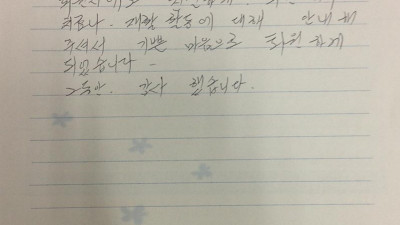 되었나. 재활 활동에 대해 안내해
주셔서 기쁜 마음으로 퇴원하게
되었습니다.
그동안. 감사 했습니다.